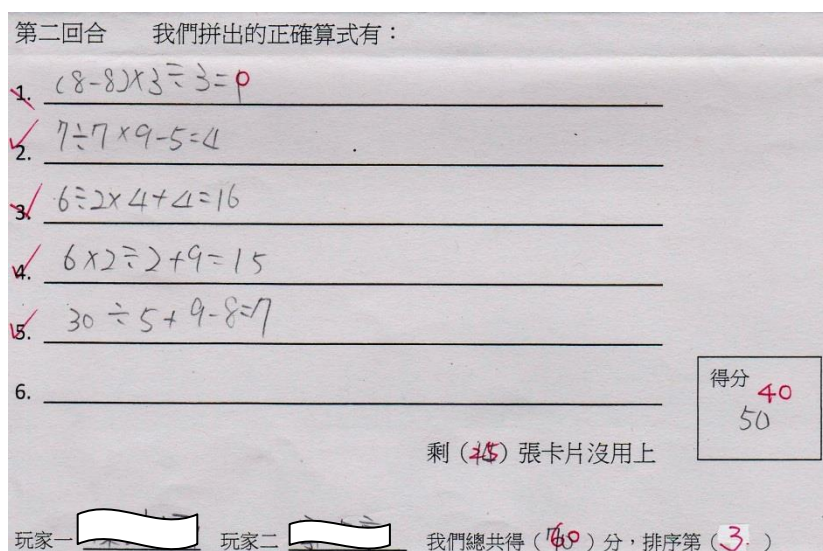 第二回合 我們拼出的正確算式有：
1. (8-8)×3÷3=0
2. 7÷7×9-5=4
3. 6÷2×4+4=16
4. 6×2÷2+9=15
5. 30÷5+9-8=7
6.
得分 40
50
剩（）張卡片沒用上
玩家一 玩家二 我們總共得（）分，排序第（3）